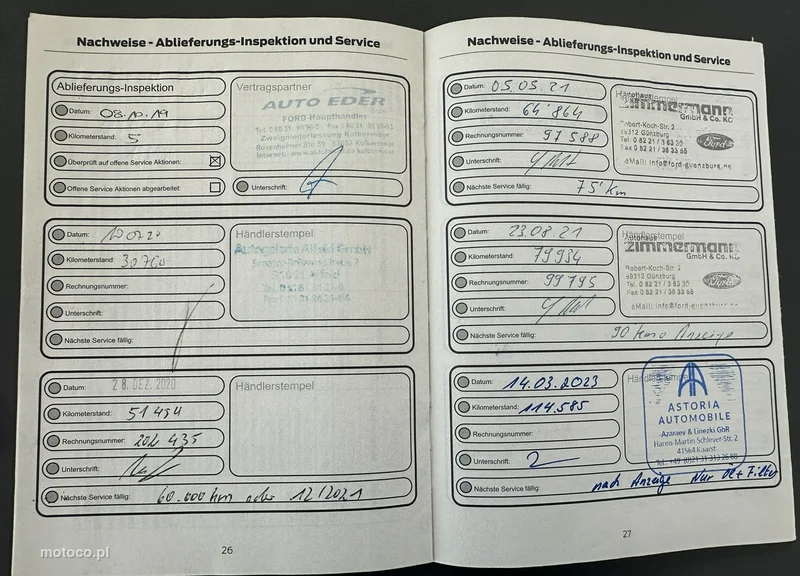 Nachweise - Ablieferungs-Inspektion und Service
Ablieferungs-Inspektion
Datum: 08.10.19
Kilometerstand: 5
Überprüft auf offene Service Aktionen:
Offene Service Aktionen abgearbeitet:
Vertragspartner
AUTO EDER
FORD-Haupthändler
Zweigniederlassung Kolbermoor
Unterschrift:
Datum:
Kilometerstand: 30760
Rechnungsnummer:
Unterschrift:
Nächste Service fällig:
Händlerstempel
Datum: 28. DEZ. 2020
Kilometerstand: 51494
Rechnungsnummer: 202 435
Unterschrift:
Nächste Service fällig: 60.000 km oder 12/2021
Händlerstempel
26
Nachweise - Ablieferungs-Inspektion und Service
Datum: 05.05.21
Kilometerstand: 64'864
Rechnungsnummer: 97588
Unterschrift:
Nächste Service fällig: 75'km
Händlerstempel
Autohaus
Zimmermann
GmbH & Co. KG
Robert-Koch-Str. 2
89312 Günzburg
Tel. 0 82 21 / 3 63 30
Fax 0 82 21 / 36 33 55
Ford
eMail: info@ford-guenzburg.de
Datum: 23.08.21
Kilometerstand: 79934
Rechnungsnummer: 99795
Unterschrift:
Nächste Service fällig:
Händlerstempel
Autohaus
Zimmermann
GmbH & Co. KG
Robert-Koch-Str. 2
89312 Günzburg
Tel. 0 82 21 / 3 63 30
Fax 0 82 21 / 36 33 55
Ford
eMail: info@ford-guenzburg.de
Datum: 14.03.2023
Kilometerstand: 114.585
Rechnungsnummer:
Unterschrift:
Nächste Service fällig: nach Anzeige Nur Öl + Filter
Händlerstempel
ASTORIA
AUTOMOBILE
Azaraev & Linezki GbR
Hanns-Martin-Schleyer-Str. 2
41564 Kaarst
27
motoco.pl